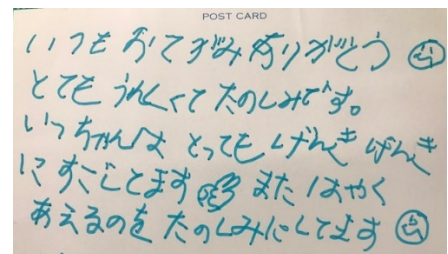 POST CARD
いつも おてがみ ありがとう
とても うれしくて たのしみです。
いっちゃんは とっても げんき げんき
に すごしてます また はやく
あえるのを たのしみにしてます